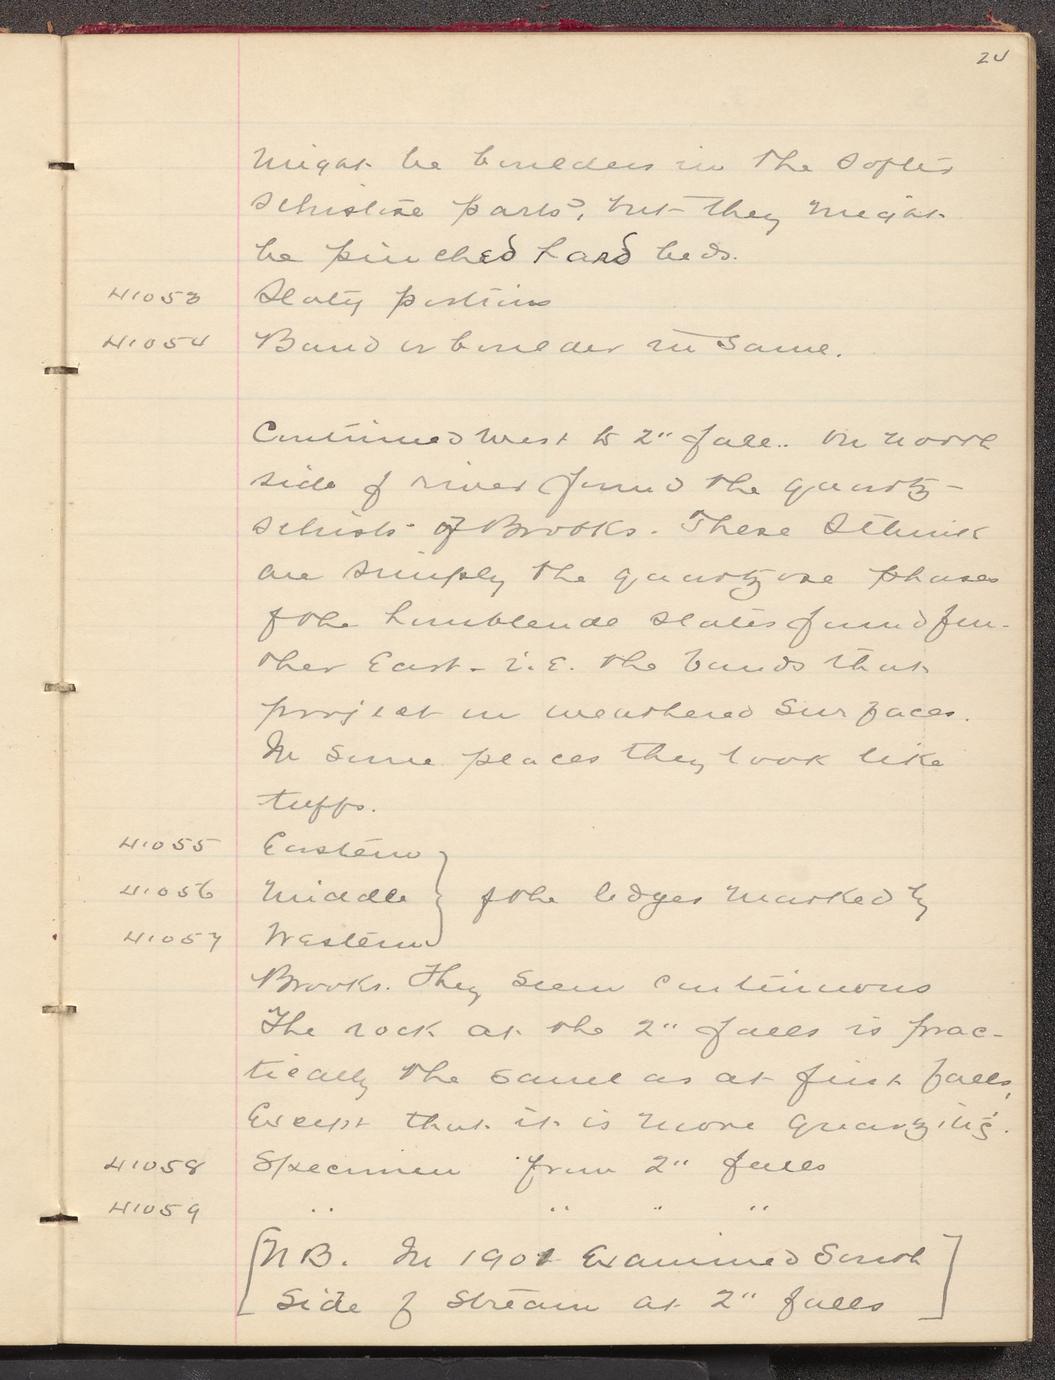 24
Might be boulders in the softer
schistose parts, but they might
be pinched hard beds.
41053 Slaty portions
41054 Band or boulder in same.
Continued west to 2" fall.. On north
side of river found the quartz-
schists of Brooks. These I think
are simply the quartzose phases
of the hornblende slates found fur-
ther East - i.e. the bands that
project on weathered surfaces.
In some places they look like
tuffs.
41055 Eastern
41056 Middle } of the ledges marked by
41057 Western
Brooks. They seem continuous
The rock at the 2" falls is prac-
tically the same as at first falls,
Except that it is more quartzitic.
41058 Specimen from 2" falls
41059 " " " "
[N B. In 1901 Examined South
Side of Stream at 2" falls]